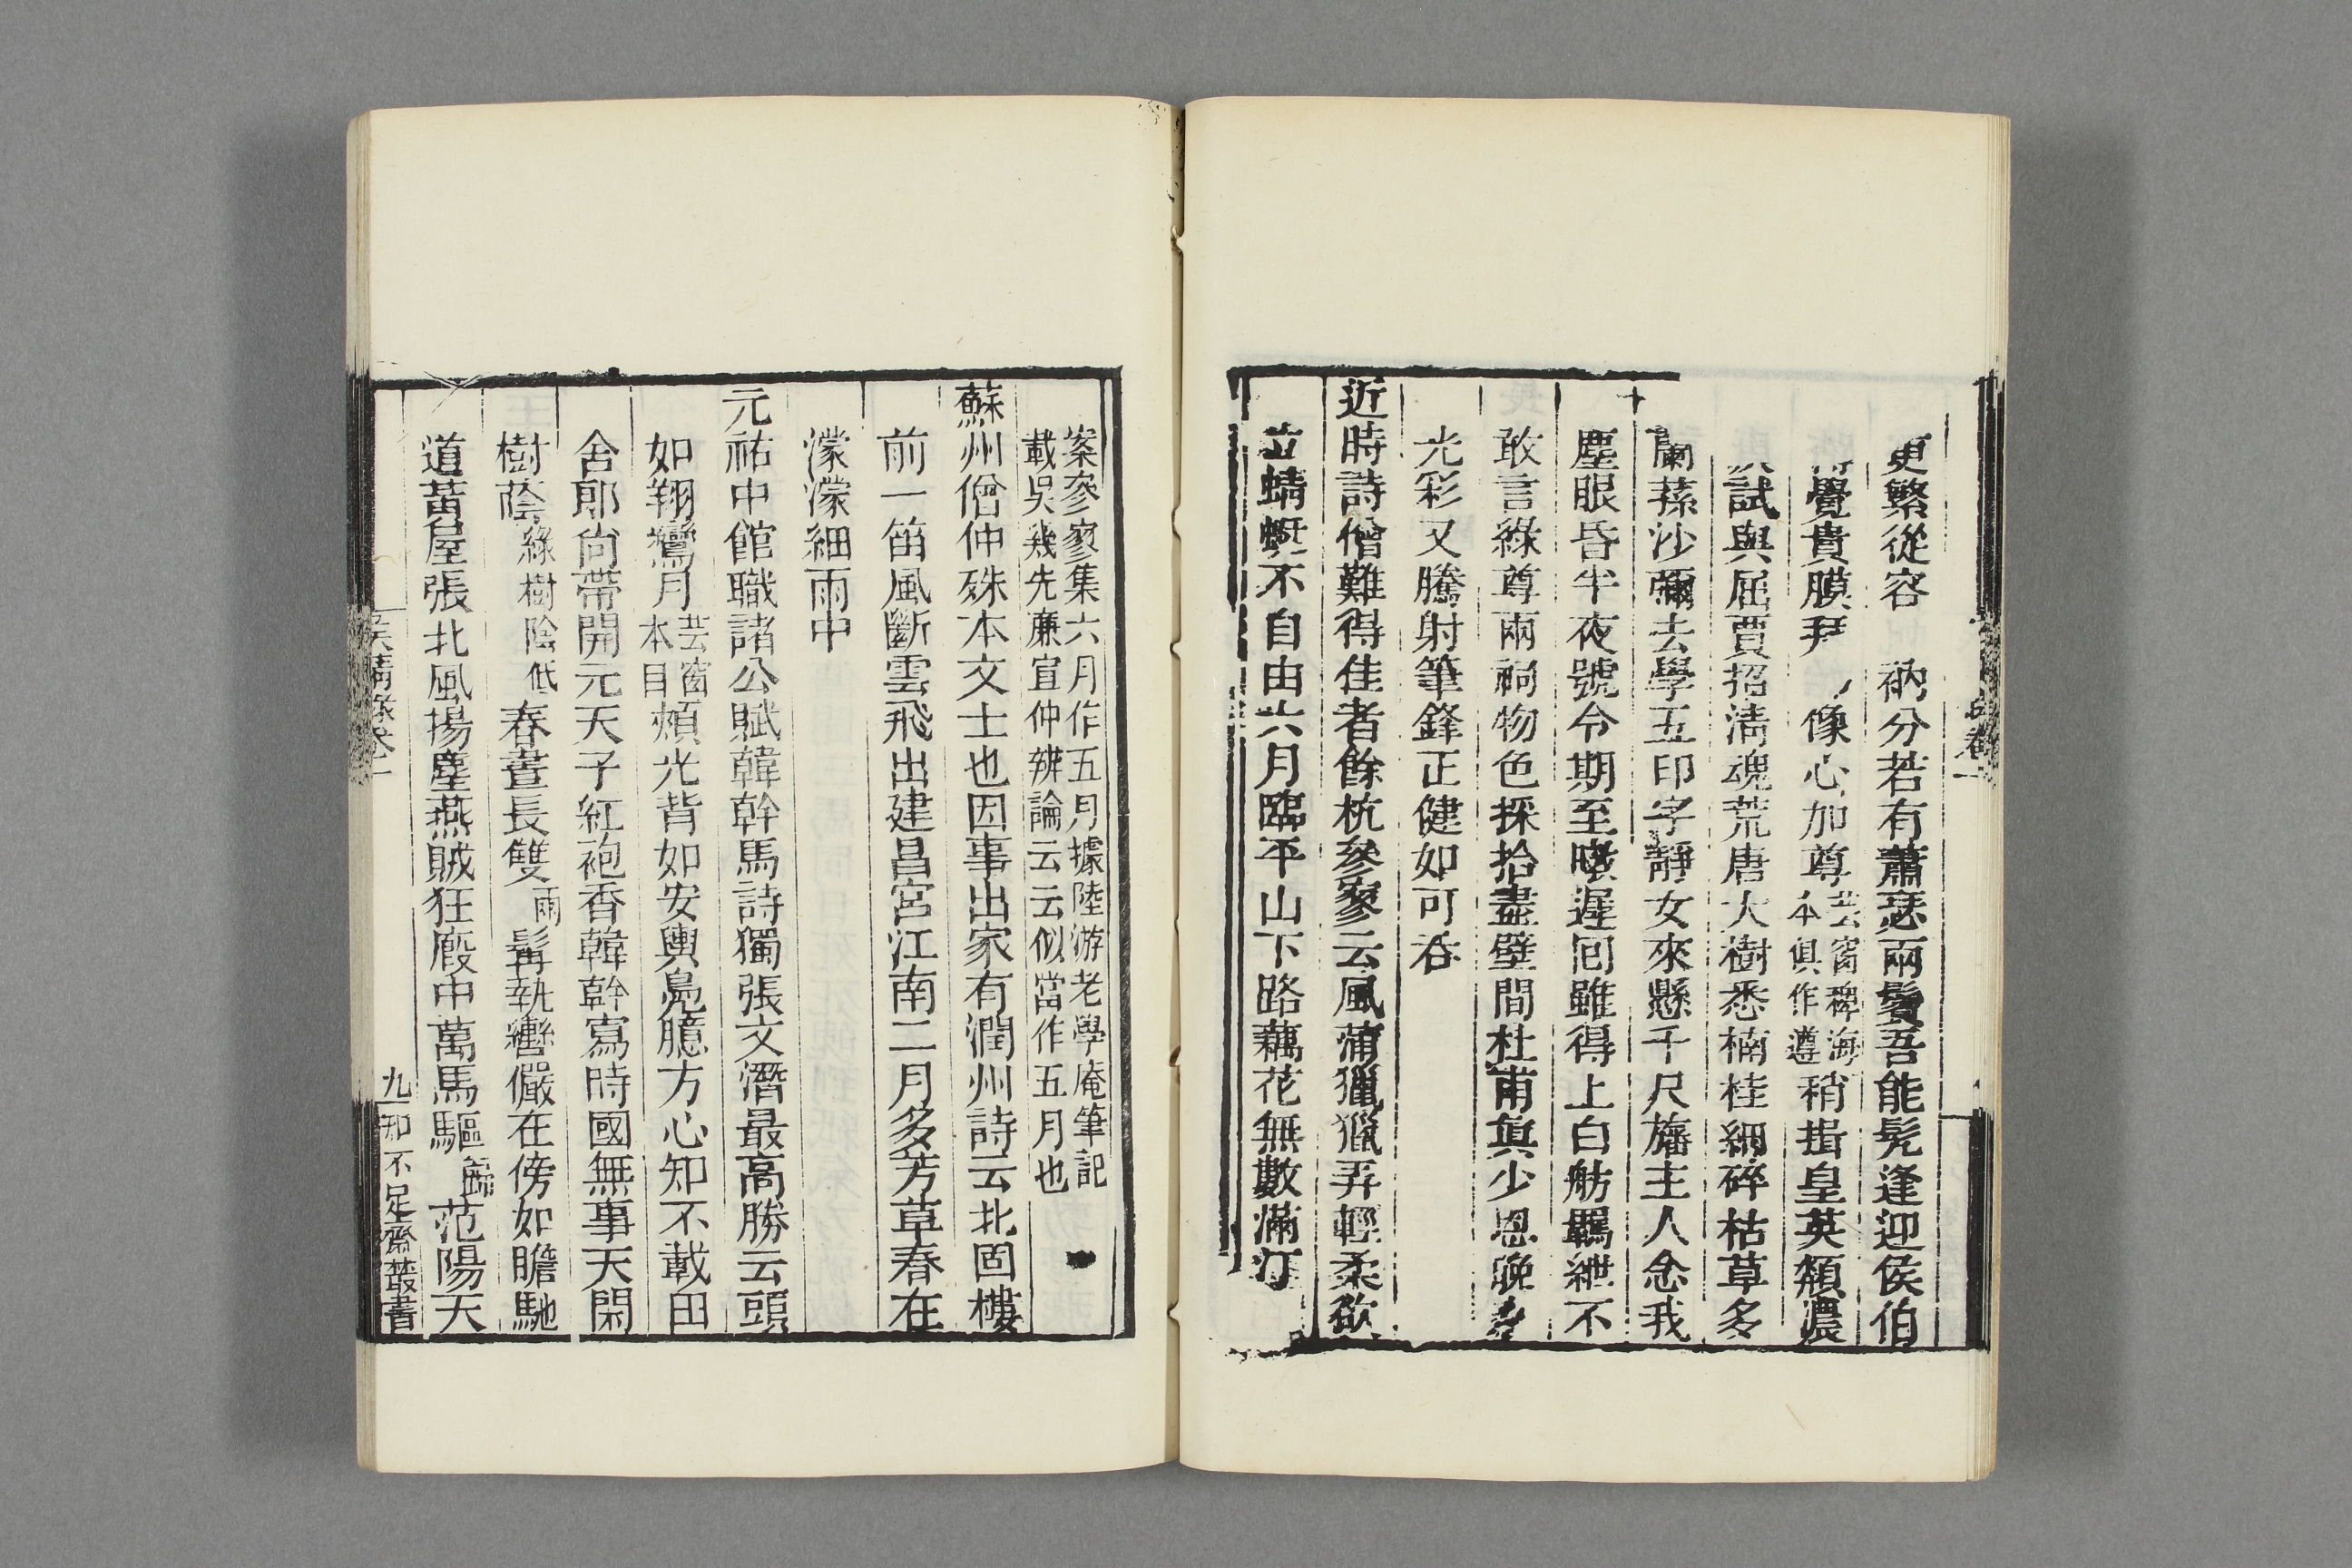 更繁從容 衲分若有蕭瑟兩鬢吾能髡逢迎侯伯
覺貴膜 像心加尊芸窗稗海本俱作遵稍揖皇英纇濃
試與屈賈招淸魂荒唐大樹悉楠桂細碎枯草多
蘭蓀沙彌去學五印字靜女來懸千尺旛主人念我
塵眼昏半夜號令期至暾遲囘雖得上白舫羈紲不
敢言綠尊兩祠物色採拾盡壁間杜甫眞少恩晚
光彩又騰射筆鋒正健如可吞
近時詩僧難得佳者餘杭參寥云風蒲獵獵弄輕柔欲
立蜻蜓不自由六月臨平山下路藕花無數滿汀
案參寥集六月作五月據陸游老學庵筆記
載吳幾先廉宣仲辨論云云似當作五月也
蘇州僧仲殊本文士也因事出家有潤州詩云北固樓
前一笛風斷雲飛出建昌宮江南二月多芳草春在
濛濛細雨中
元祐中館職諸公賦韓幹馬詩獨張文潛最高勝云頭
如翔鸞月芸窗本目頰光背如安輿鳧臆方心知不載田
舍郞尚帶開元天子紅袍香韓幹寫時國無事天閑
樹蔭綠樹陰低春晝長雙兩髯執轡儼在傍如瞻馳
道黃屋張北風揚塵燕賊狂廄中萬馬驅歸范陽天
侯鯖錄卷二
九
知不足齋叢書